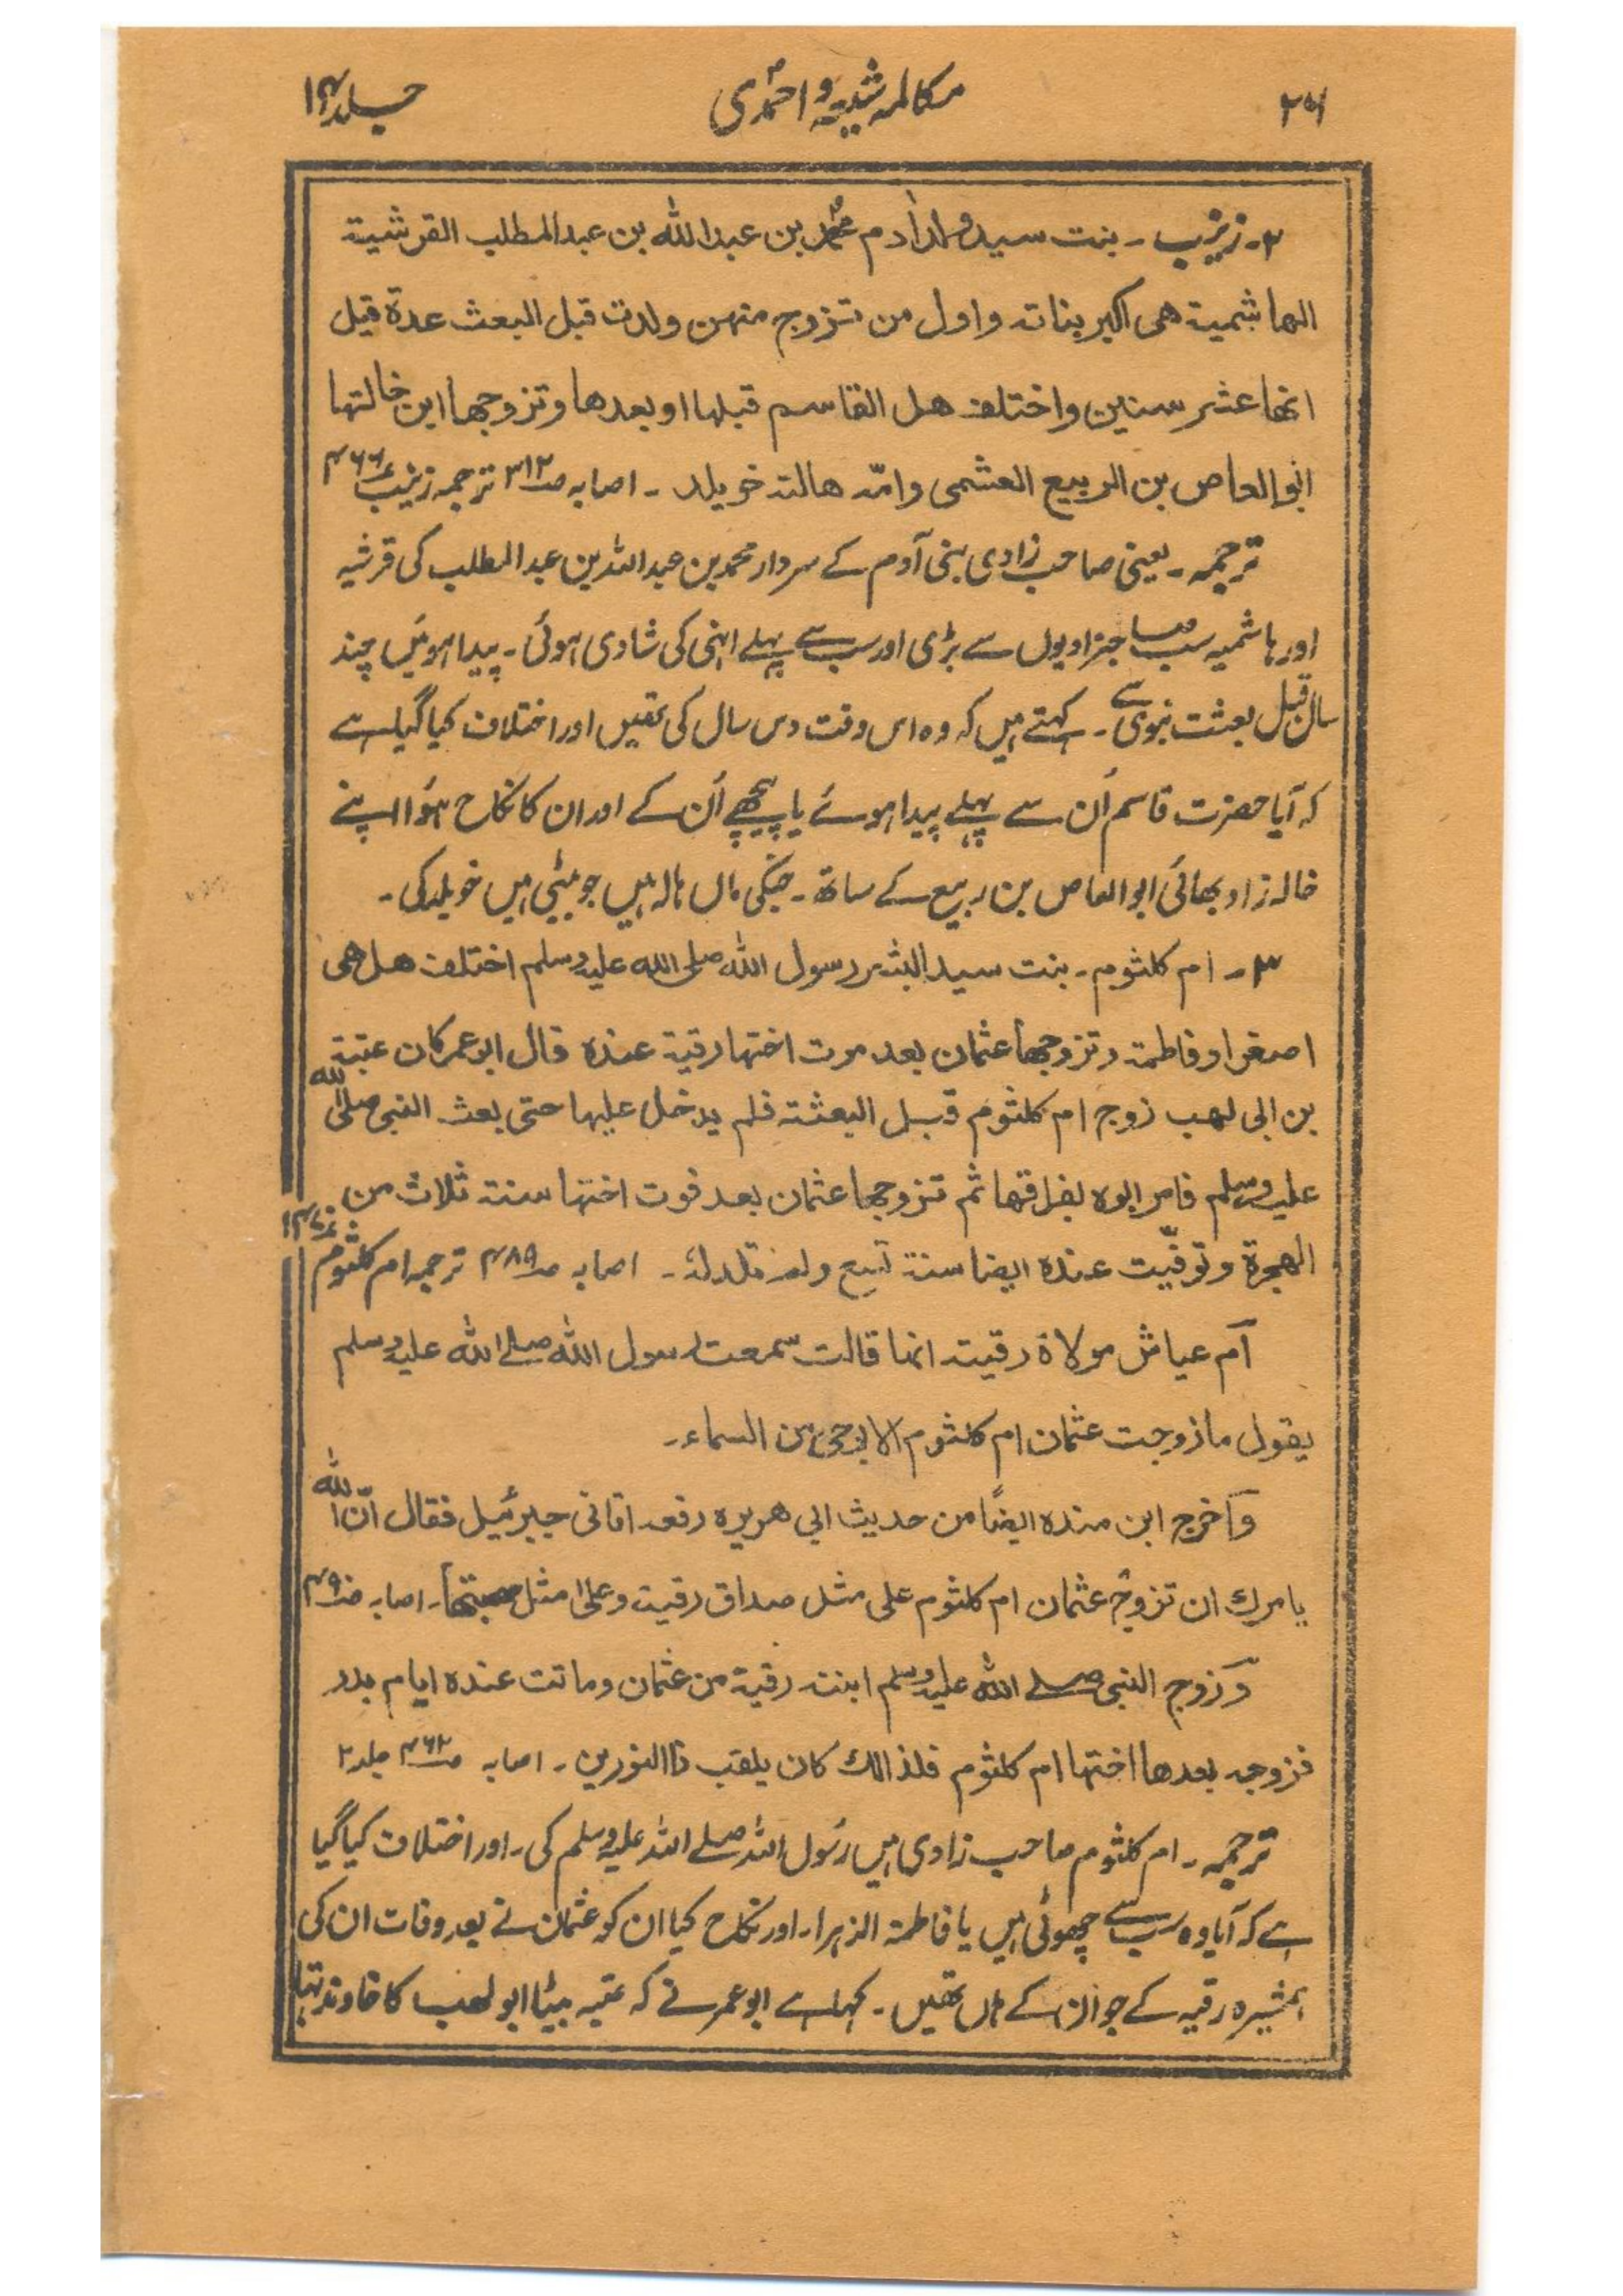 ۲۵۶ مکالمہ شیعہ و احمدی جلد ۱۴
۲۔ زینب ۔ بنت سید ولد آدم محمد بن عبد الله بن عبد المطلب القرشیة
الهاشمیة هی اکبر بناته و اول من تزوج منهن ولدت قبل البعث عدة قیل
انها عشر سنین واختلف هل القاسم قبلها او بعدها وتزوجها ابن خالتها
ابو العاص بن الربیع العشمی وامّہ هالته خویلد ۔ اصابہ صـ۳۱۲ ترجمہ زینب ۴۶۶
ترجمہ ۔ یعنی صاحب زادی بنی آدم کے سردار محمد بن عبد اللہ بن عبد المطلب کی قرشیہ
اور ہاشمیہ سب صاجزادیوں سے بڑی اور سب سے پہلے انہی کی شادی ہوئی ۔ پیدا ہوئیں چند
سال قبل بعثت نبوی سے ۔ کہتے ہیں کہ وہ اس وقت دس سال کی تھیں اور اختلاف کیا گیا ہے
کہ آیا حضرت قاسم اُن سے پہلے پیدا ہوئے یا پیچھے اُن کے اور ان کا نکاح ہؤا اپنے
خالہ زاد بھائی ابو العاص بن ربیع کے ساتھ ۔ جنکی ماں ہالہ ہیں جو بیٹی ہیں خویلد کی ۔
۳ ۔ ام کلثوم ۔ بنت سید البشر رسول الله صلی الله علیہ وسلم اختلف هل هی
اصغر او فاطمة وتزوجها عثمان بعد موت اختها رقیة عنده قال ابو عمر کان عتبة
بن ابی لهب زوج ام کلثوم قبل البعثة فلم یدخل علیها حتی بعث النبی صلی الله
علیہ وسلم فامر ابوه بفراقها ثم تزوجها عثمان بعد فوت اختها سنة ثلاث من
الهجرة و توفّیت عنده ایضا سنة تسع ولم تلد لہ ۔ اصابہ صـ۴۸۹ ترجمہ ام کلثوم
اَم عیاش مولاة رقیة انها قالت سمعت رسول الله صلے الله علیہ وسلم
یقول ما زوجت عثمان ام کلثوم الا بوحی من السماء ۔
وَاخرج ابن منده ایضًا من حدیث ابی هریره رفعہ اتانی جبرئیل فقال انّ الله
یامرك ان تزوج عثمان ام کلثوم علی مثل صداق رقیة وعلی مثل صحبتها ۔ اصابہ صـ۴۹۰
وَزوج النبی صلے الله علیہ وسلم ابنتہ رقیة من عثمان وماتت عنده ایام بدر
فزوجہ بعدها اختها ام کلثوم فلذالك کان یلقب ذا النورین ۔ اصابہ صـ۴۶۲ جلد ۲
ترجمہ ۔ ام کلثوم صاحب زادی ہیں رسُول اللہ صلے اللہ علیہ وسلم کی ۔ اور اختلاف کیا گیا
ہے کہ آیا وہ سب سے چھوٹی ہیں یا فاطمة الزہرا۔ اور نکاح کیا ان کو عثمان نے بعد وفات ان کی
ہمشیرہ رقیہ کے جو ان کے ہاں تھیں ۔ کہا ہے ابو عمر نے کہ عتبہ بیٹا ابو لھب کا خاوند تہا